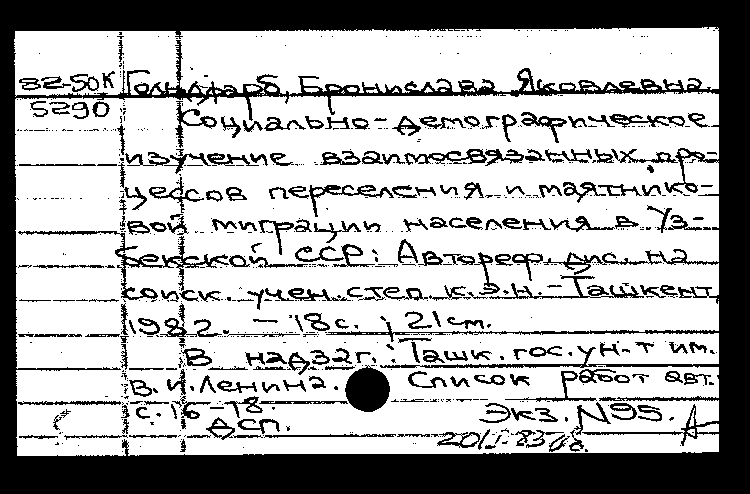 82-50К Гольдфарб, Бронислава Яковлевна.
5290
Социально-демографическое
изучение взаимосвязанных про-
цессов переселения и маятнико-
вой миграции населения в Уз-
бекской ССР: Автореф. дис. на
соиск. учен. степ. к.э.н. - Ташкент,
1982. - 18с. ; 21см.
В надзаг.: Ташк. гос. ун-т им.
В.И.Ленина. Список работ авт.:
с. 16-18.
ДСП. Экз. N95.